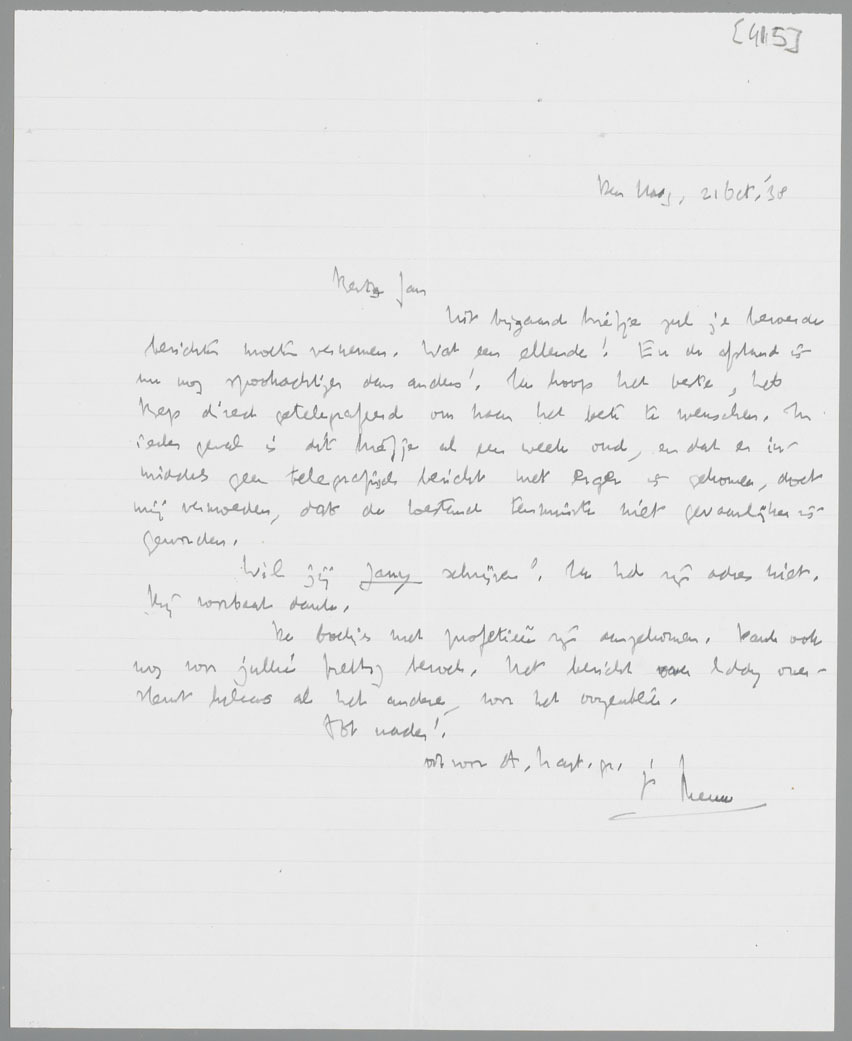 [415]
Den Haag, 21 Oct. '38
Beste Jan
Uit bijgaand briefje zul je beroerde
berichten moeten vernemen. Wat een ellende! En de afstand is
nu nog spookachtiger dan anders! Ik hoop het beste, heb
direct getelegrafeerd om hem het beste te wenschen. In
ieder geval is dit briefje al een week oud, en dat er in-
middels geen telegrafisch bericht met erger is gekomen, doet
mij vermoeden, dat de toestand tenminste niet gevaarlijker is
geworden.
Wil jij Jany schrijven? Ik heb zijn adres niet.
Bij voorbaat dank.
De boekjes met profetieën zijn aangekomen. Dank ook
nog voor jullie prettig bezoek. Het bericht over Eddy over-
stemt helaas al het andere, voor het oogenblik.
Tot nader!
ook voor A, hart. gr. je Menno